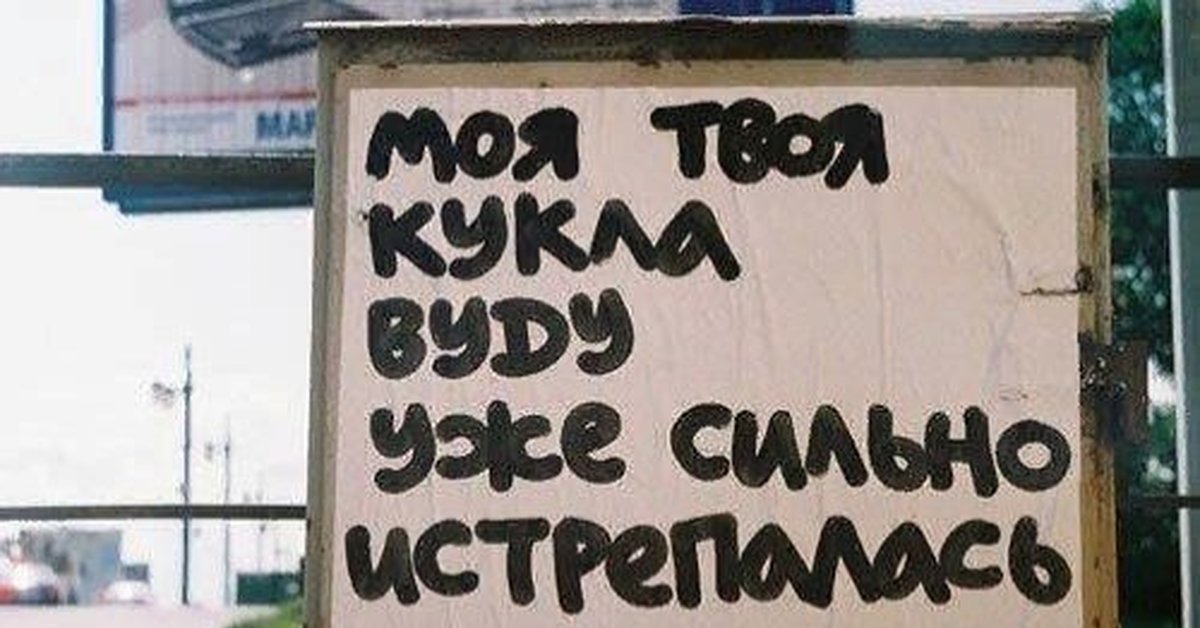 МАР
моя твоя
кукла
вуду
уже сильно
истрепалась